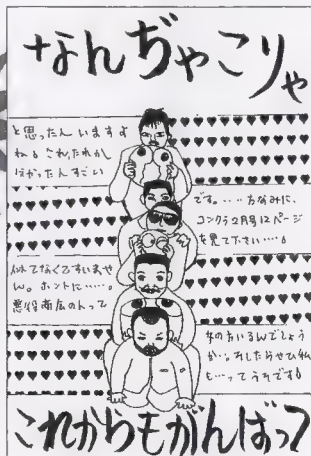 なんぢゃこりゃ
と思ったんいますよ
ねぇこれ、だれか
ばかったんすごい
です。……ちなみに、
コンクラ2月号12ページ
を見て下さい……。
似てなくてすいませ
ん。ホントに……。
悪役商会の人って
女の方いるんでしょう
か…。もしたらぜひ私
も…ってうそです。
これからもがんばって